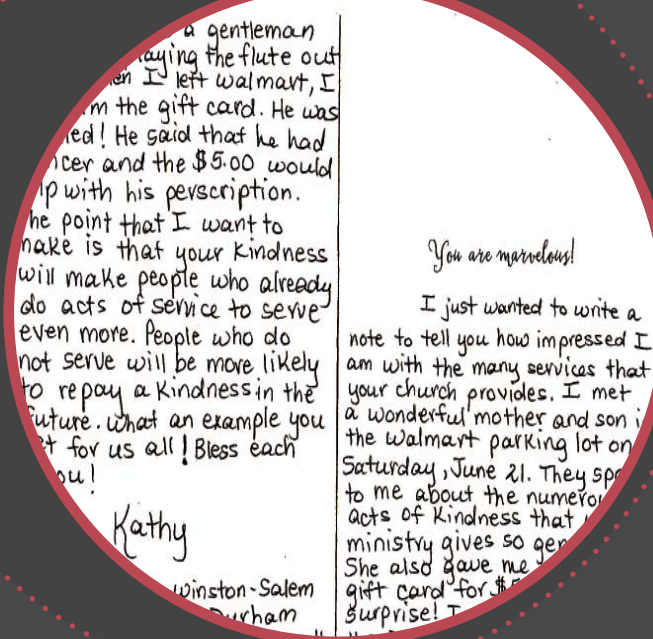 a gentleman
aying the flute out
en I left walmart, I
m the gift card. He was
ed! He said that he had
cer and the $5.00 would
lp with his perscription.
he point that I want to
make is that your kindness
will make people who already
do acts of service to serve
even more. People who do
not serve will be more likely
to repay a kindness in the
future. what an example you
t for us all! Bless each
ou!
Kathy
winston-Salem
Durham
You are marvelous!
I just wanted to write a
note to tell you how impressed I
am with the many services that
your church provides. I met
a wonderful mother and son i
the walmart parking lot on
Saturday, June 21. They sp
to me about the numerou
acts of kindness that
ministry gives so gen
She also gave me
gift card for $5
surprise! I